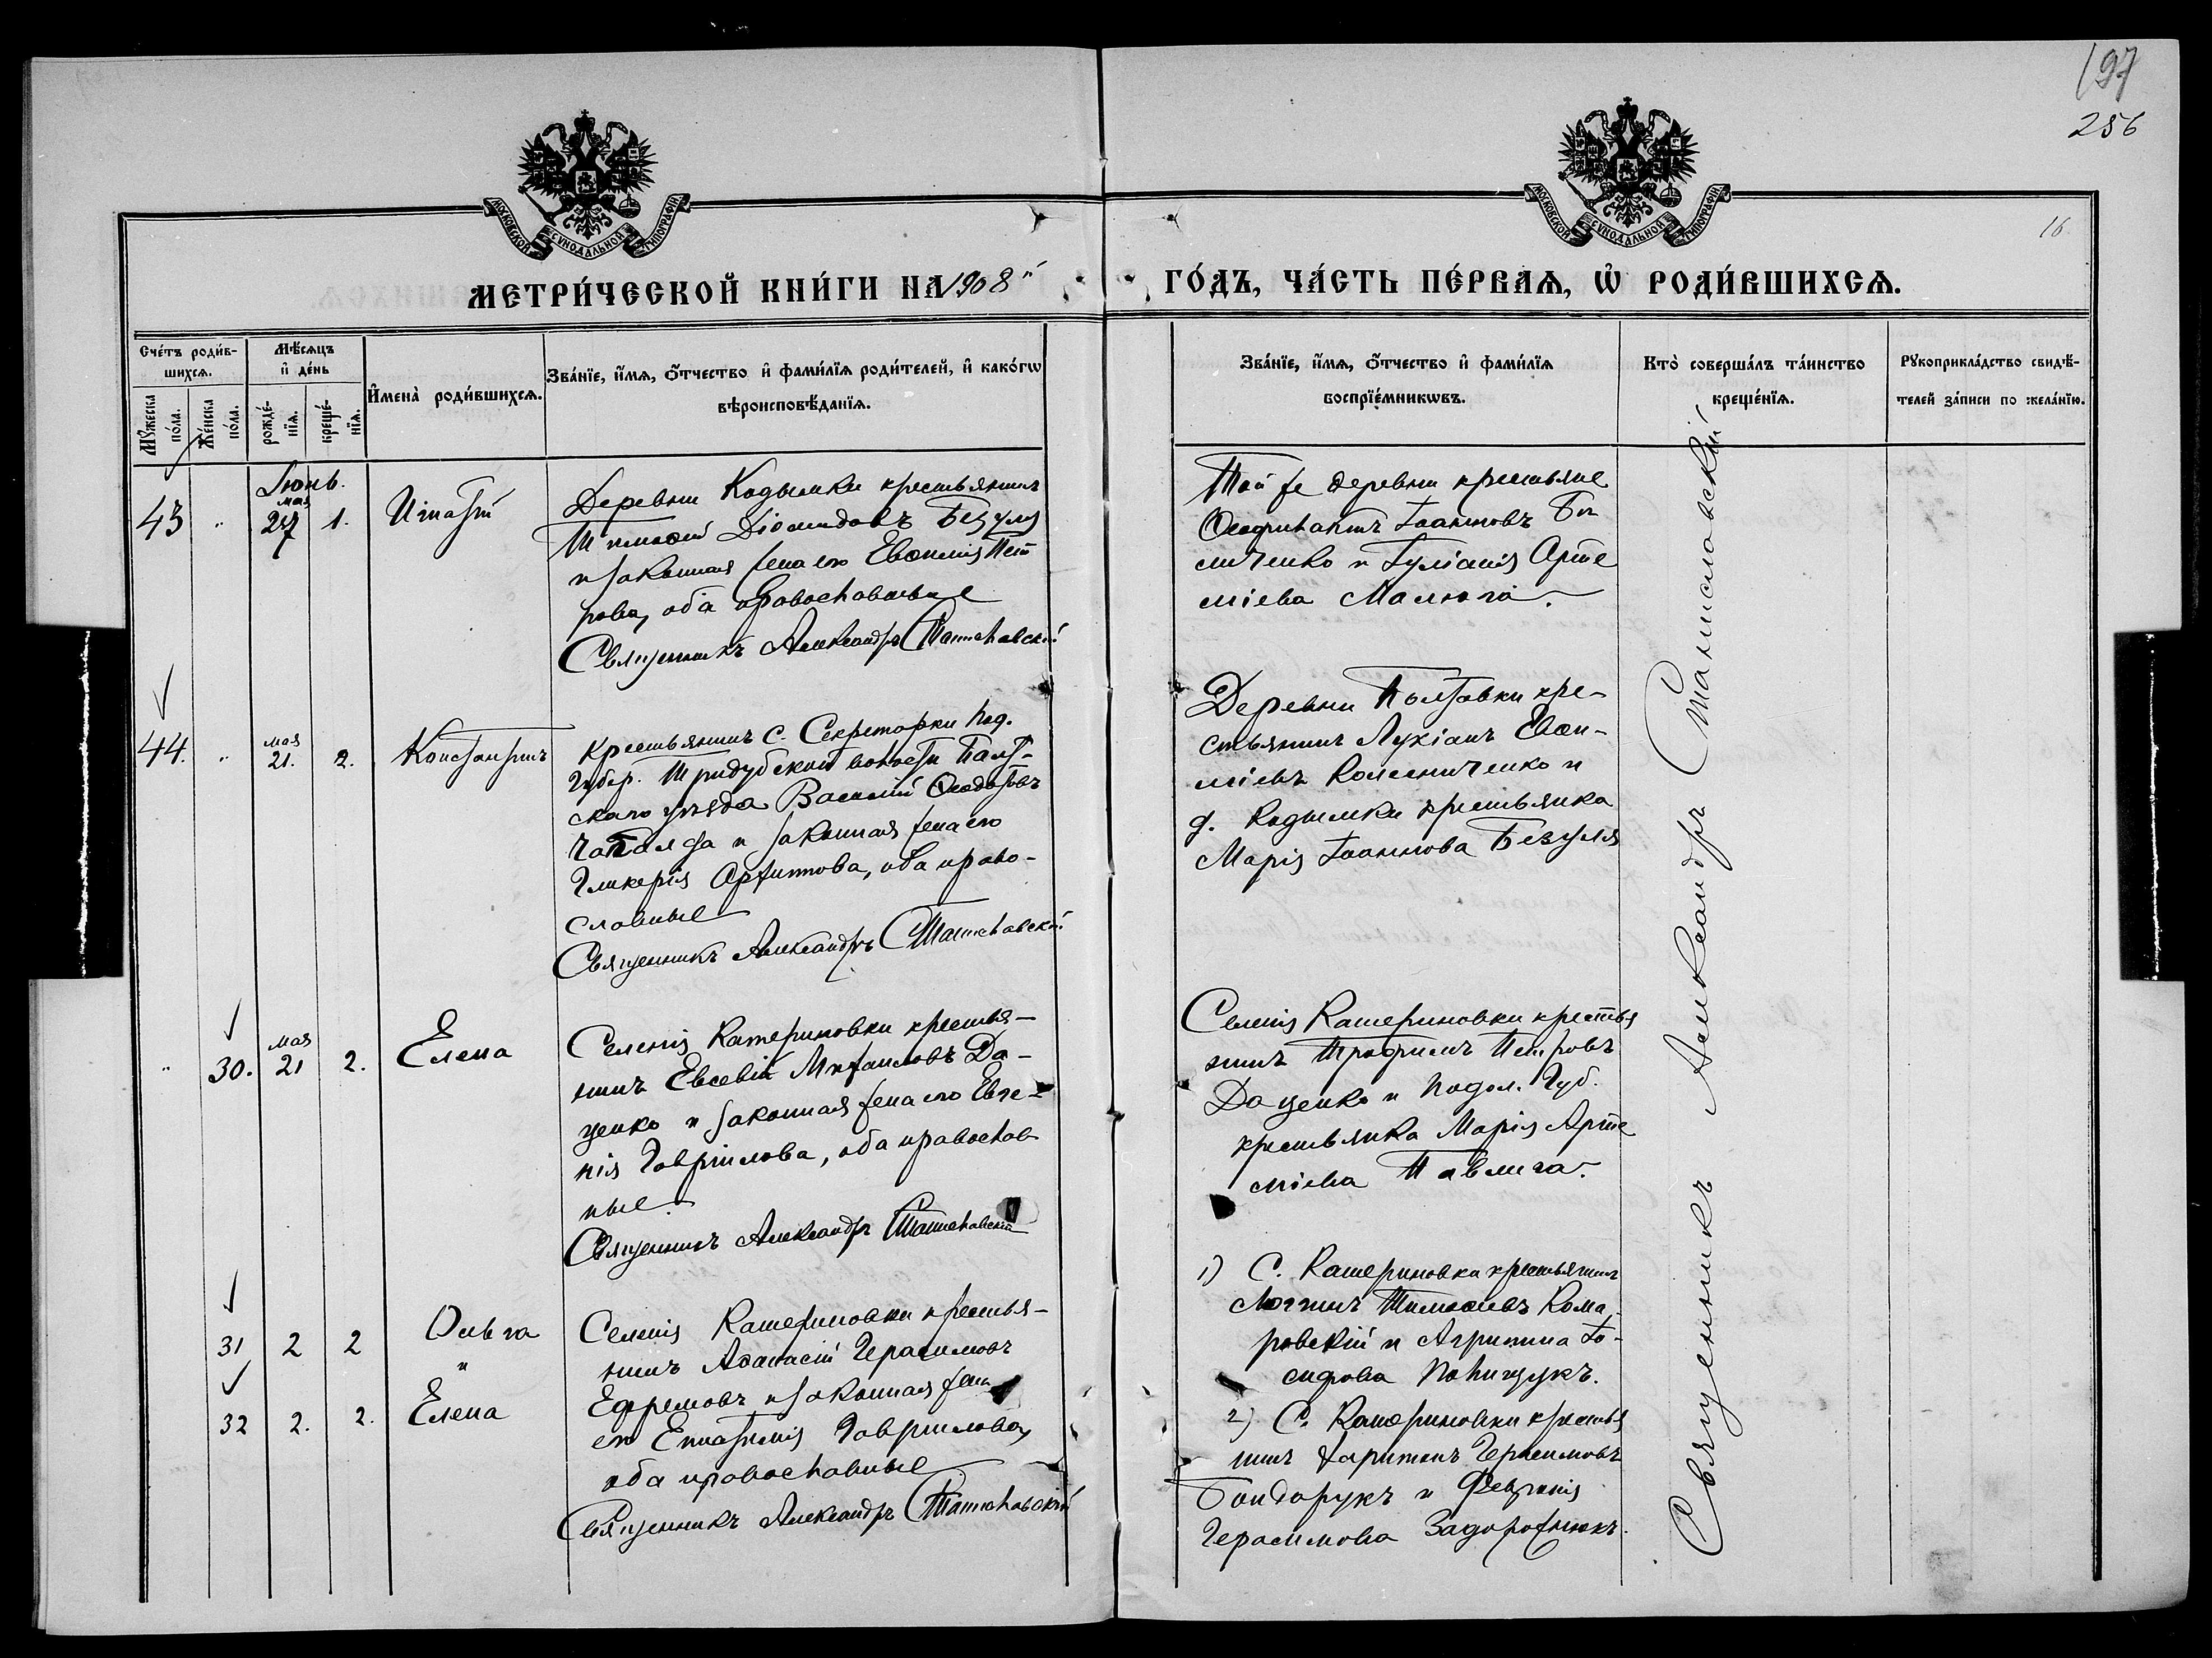 197
256
16
МОСКОВСКОЙ СѴНОДАЛЬНОЙ ТИПОГРАФІИ
МОСКОВСКОЙ СѴНОДАЛЬНОЙ ТИПОГРАФІИ
МЕТРИ́ЧЕСКОЙ КНИ́ГИ НА 1908й ГО́ДЪ, ЧА́СТЬ ПЕ́РВАѦ, Ѡ҆ РОДИ́ВШИХСѦ.
Сче́тъ роди́в-
шихсѧ.
Мѣ́сѧцъ
и҆ де́нь
И҆мена̀ роди́вшихсѧ.
Зва́нїе, и҆́мѧ, ѻ҆́тчество и҆ фами́лїѧ роди́телей, и҆ како́гѡ
вѣроисповѣ́данїѧ.
Зва́нїе, и҆́мѧ, ѻ҆́тчество и҆ фами́лїѧ
воспрїе́мникѡвъ.
Кто̀ соверша́лъ та́инство
креще́нїѧ.
Рꙋкоприкла́дство свидѣ́-
телей за́писи по жела́нїю.
Мꙋ́жеска
по́ла.
Же́нска
по́ла.
рожде́-
нїѧ.
креще́-
нїѧ.
Іюнь.
43 " мая 27 1. Игнатій
Деревни Кодымки крестьянинъ
Тимоѳей Діомидовъ Безуля
и законная жена его Евѳимія Пет
рова, оба православные
Священникъ Александръ Станиславскій
Той же деревни крестьяне
Ѳеофилактъ Іоанновъ
сличенко и Іуліанія Арте
міева Малюга.
44. " мая 21. 2. Константинъ
крестьянинъ с. Секретарки Под.
Губер. Тридубской волости Балт-
скаго уѣзда Василій Ѳеодоровъ
и законная жена его
Гликерія Архипова, оба право-
славные
Священникъ Александръ Станиславскій
Деревни Полтавки кре-
стьянинъ Лукіанъ Евѳи-
міевъ Колесниченко и
д. Кодымки крестьянка
Марія Іоаннова Безуля
" 30. мая 21 2. Елена
Селенія Катериновки крестья-
нинъ Евсевій Михаиловъ До-
ценко и законная жена его Евге-
нія Гавриилова, оба православ
ные.
Священникъ Александръ Станиславскій
Селенія Катериновки крестья
нинъ Трофимъ Петровъ
Доценко и Подол. Губ.
крестьянка Марія Арте
міева Павлига.
31 2 2 Ольга
и
32 2. 2. Елена
Селенія Катериновки крестья-
нинъ Аѳанасій Герасимовъ
Ефремовъ и законная жена
его Епистимія Гавриилова,
оба православные
Священникъ Александръ Станиславскій
1) С. Катериновки крестьянинъ
Логгинъ Тимоѳеевъ Кома-
ровскій и Агрипина Іо-
сифова Полищукъ.
2) С. Катериновки крестья
нинъ Харитонъ Герасимовъ
Бондарукъ и Февронія
Герасимова Задорожнюкъ.
Священникъ Александръ Станиславскій